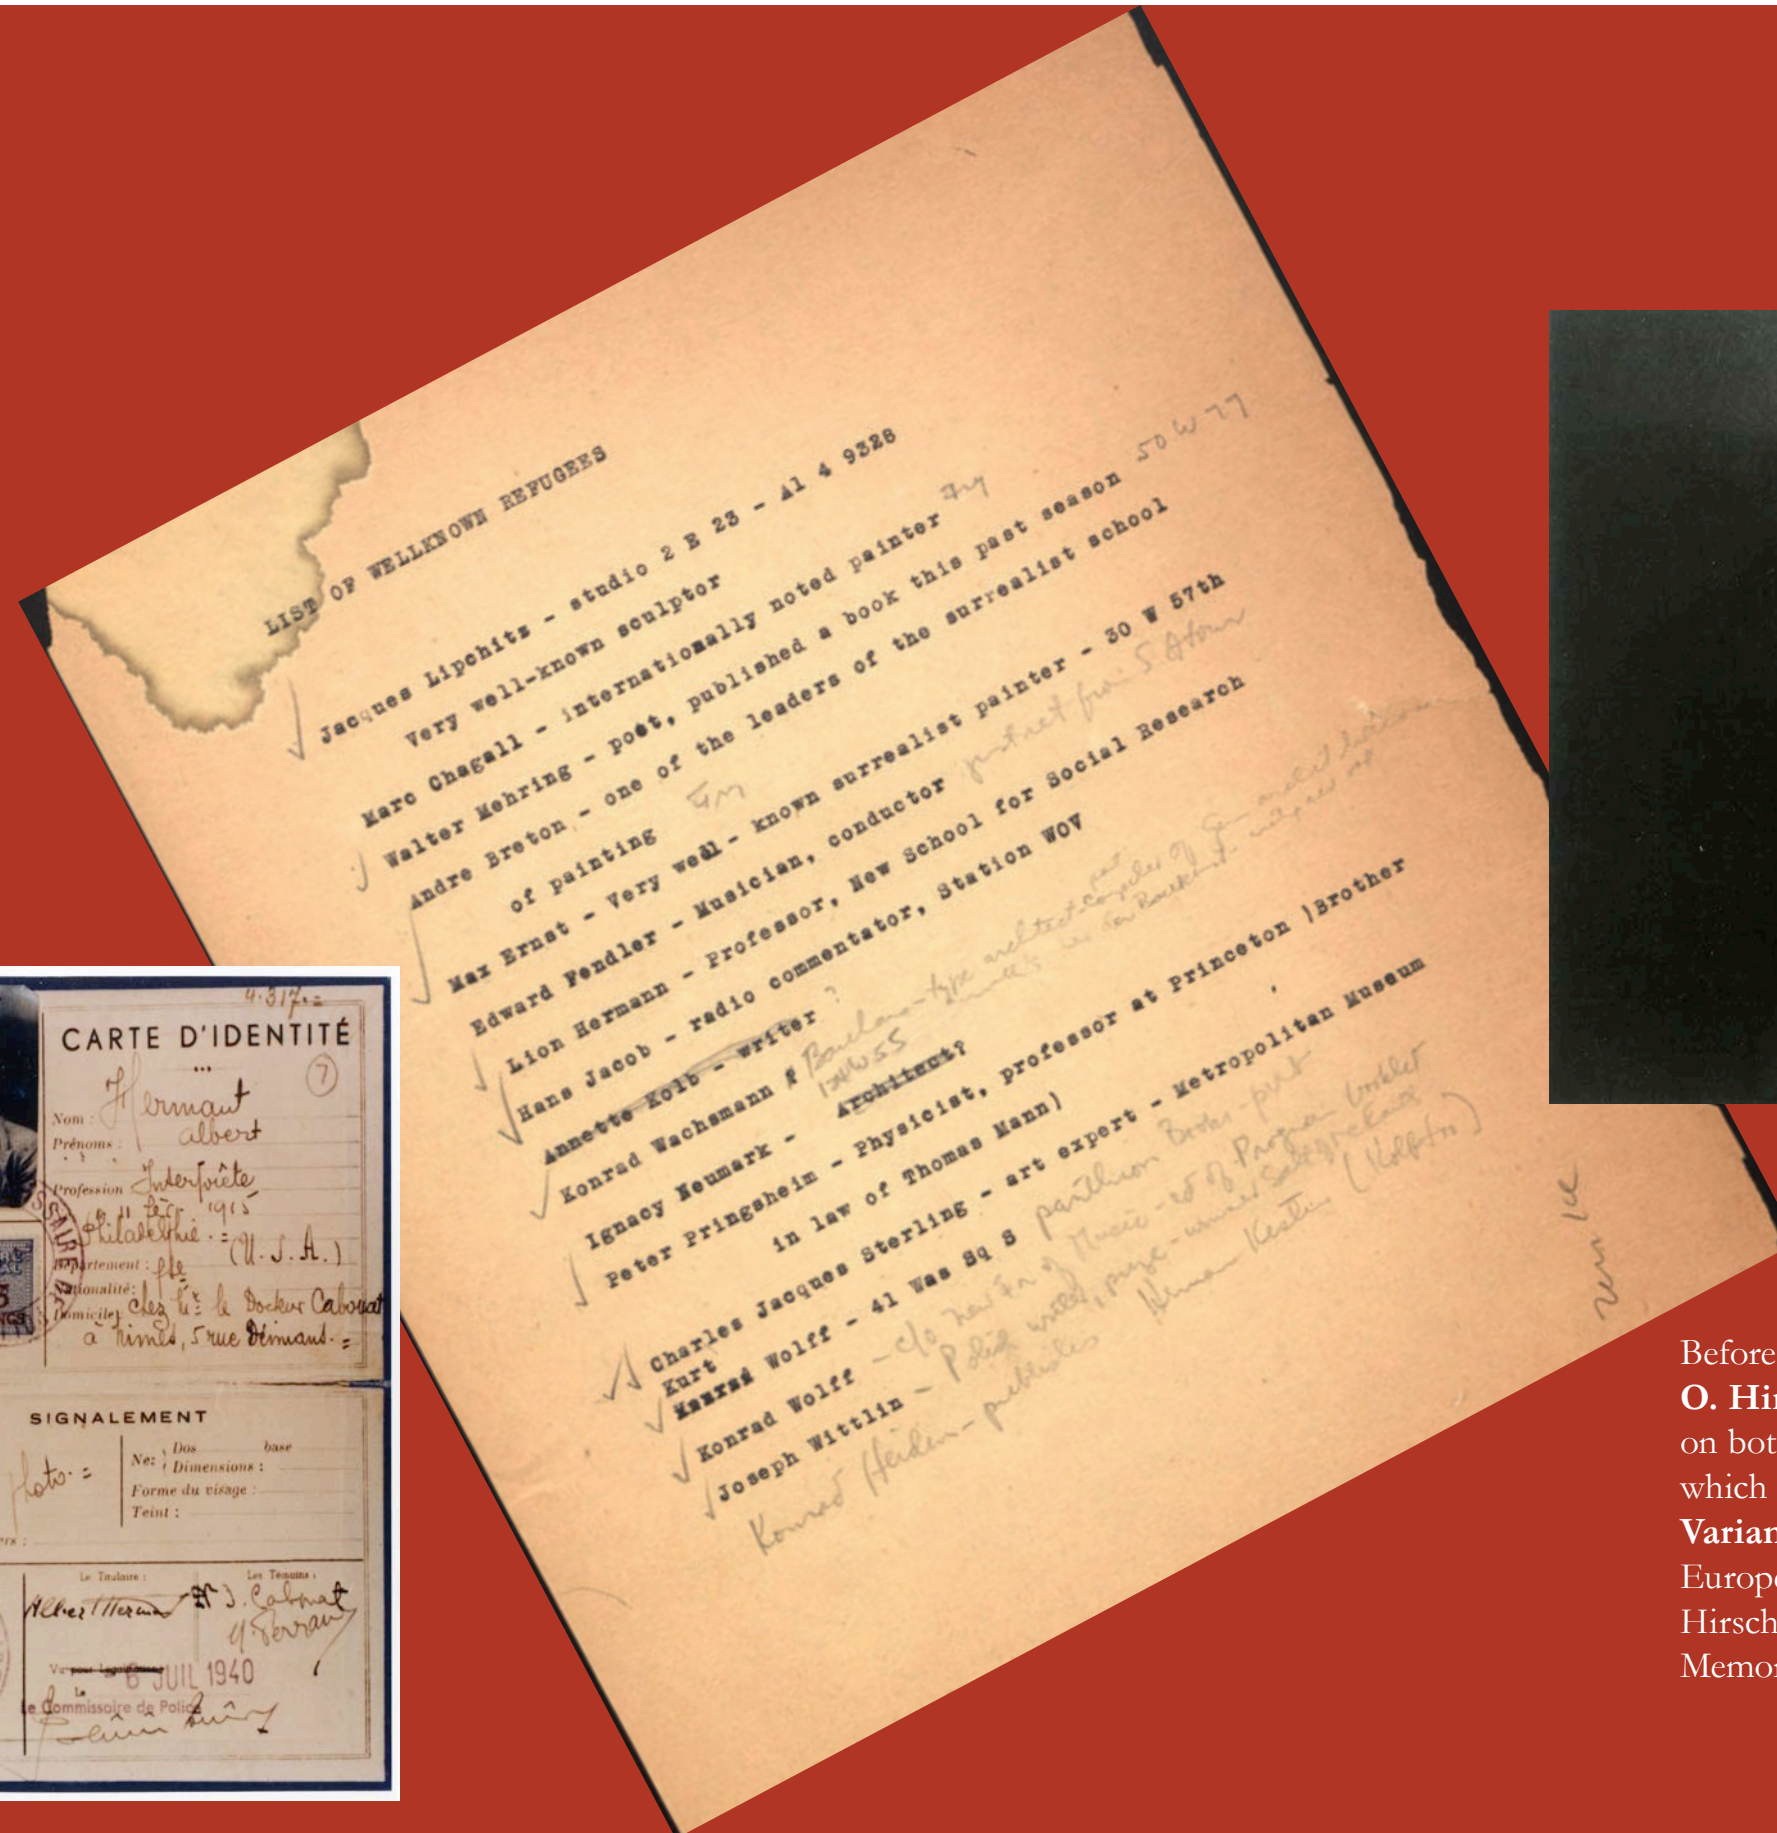 LIST OF WELLKNOWN REFUGEES
Jacques Lipchitz - studio 2 E 23 - Al 4 9328
Very well-known sculptor
Marc Chagall - internationally noted painter Fry
Walter Mehring - poet, published a book this past season 50 W 77
Andre Breton - one of the leaders of the surrealist school
of painting Fry
Max Ernst - Very well - known surrealist painter - 30 W 57th
Edward Fendler - Musician, conductor
Lion Hermann - Professor, New School for Social Research
Hans Jacob - radio commentator, Station WOV
Annette Kolb - writer ?
Konrad Wachsmann
Ignacy Neumark - Architect?
Peter Pringsheim - Physicist, professor at Princeton )Brother
in law of Thomas Mann)
Charles Jacques Sterling - art expert - Metropolitan Museum
Kurt
Wolff - 41 Was Sq S pantheon Books - pub
Konrad Wolff - c/o New Fr of Music - ed of Program booklet
Joseph Wittlin - Polish writer, prize-winner
Konrad Heiden - publicist Herman Kesten
4.317.=
CARTE D'IDENTITÉ
7
Nom : Hermant
Prénoms : Albert
Profession Interprète
1915
Philadelphie.= (U.S.A.)
Département :
Nationalité:
Domicile: chez le Docteur Cabouat
à Nimes, 5 rue Démians.=
SIGNALEMENT
Photo.=
Nez
Dos base
Dimensions :
Forme du visage :
Teint :
Le Titulaire :
Les Témoins :
Albert Hermant
J. Cabouat
Vu pour
6 JUIL 1940
Le Commissaire de Police
Before
O. Hir
on bot
which
Varian
Europe
Hirsch
Memor